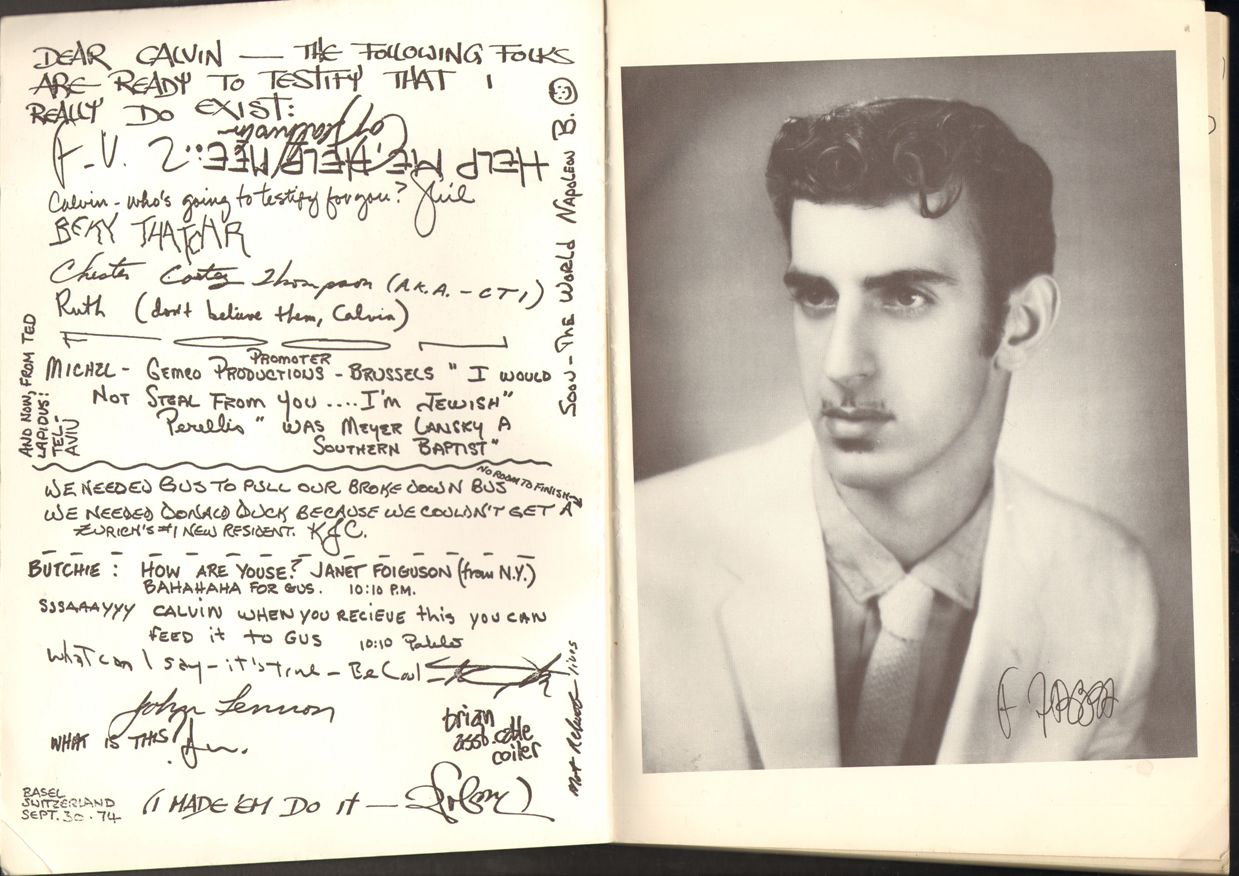 DEAR CALVIN — THE FOLLOWING FOLKS
ARE READY TO TESTIFY THAT I
REALLY DO EXIST:
HELP ME, HELP MEE!!
Calvin - who's going to testify for you?
BEKY THATCHR
Chester Thompson (A.K.A. - CT1)
Ruth (don't believe them, Calvin)
PROMOTER
MICHEL - GEMCO PRODUCTIONS - BRUSSELS " I WOULD
NOT STEAL FROM YOU ....I'M JEWISH"
" WAS MEYER LANSKY A
SOUTHERN BAPTIST"
AND NOW, FROM TED
LAPIDUS:
TEL-
AVIV
SOON - THE WORLD NAPOLEON B.
NO ROOM TO FINISH
WE NEEDED GUS TO PULL OUR BROKE DOWN BUS
WE NEEDED DONALD DUCK BECAUSE WE COULDN'T GET A
ZURICH'S #1 NEW RESIDENT. KJC.
BUTCHIE : HOW ARE YOUSE? JANET FOIGUSON (from N.Y.)
BAHAHAHA FOR GUS. 10:10 P.M.
SSSAAAYYY CALVIN WHEN YOU RECIEVE this YOU CAN
FEED it to GUS
10:10 Pablo
What can I say - it's true - Be Cool
John Lennon
brian
asso. cable
coiler
WHAT IS THIS?
lives
BASEL
SWITZERLAND
SEPT. 30. 74
(I MADE 'EM DO IT —
F ZAPPA